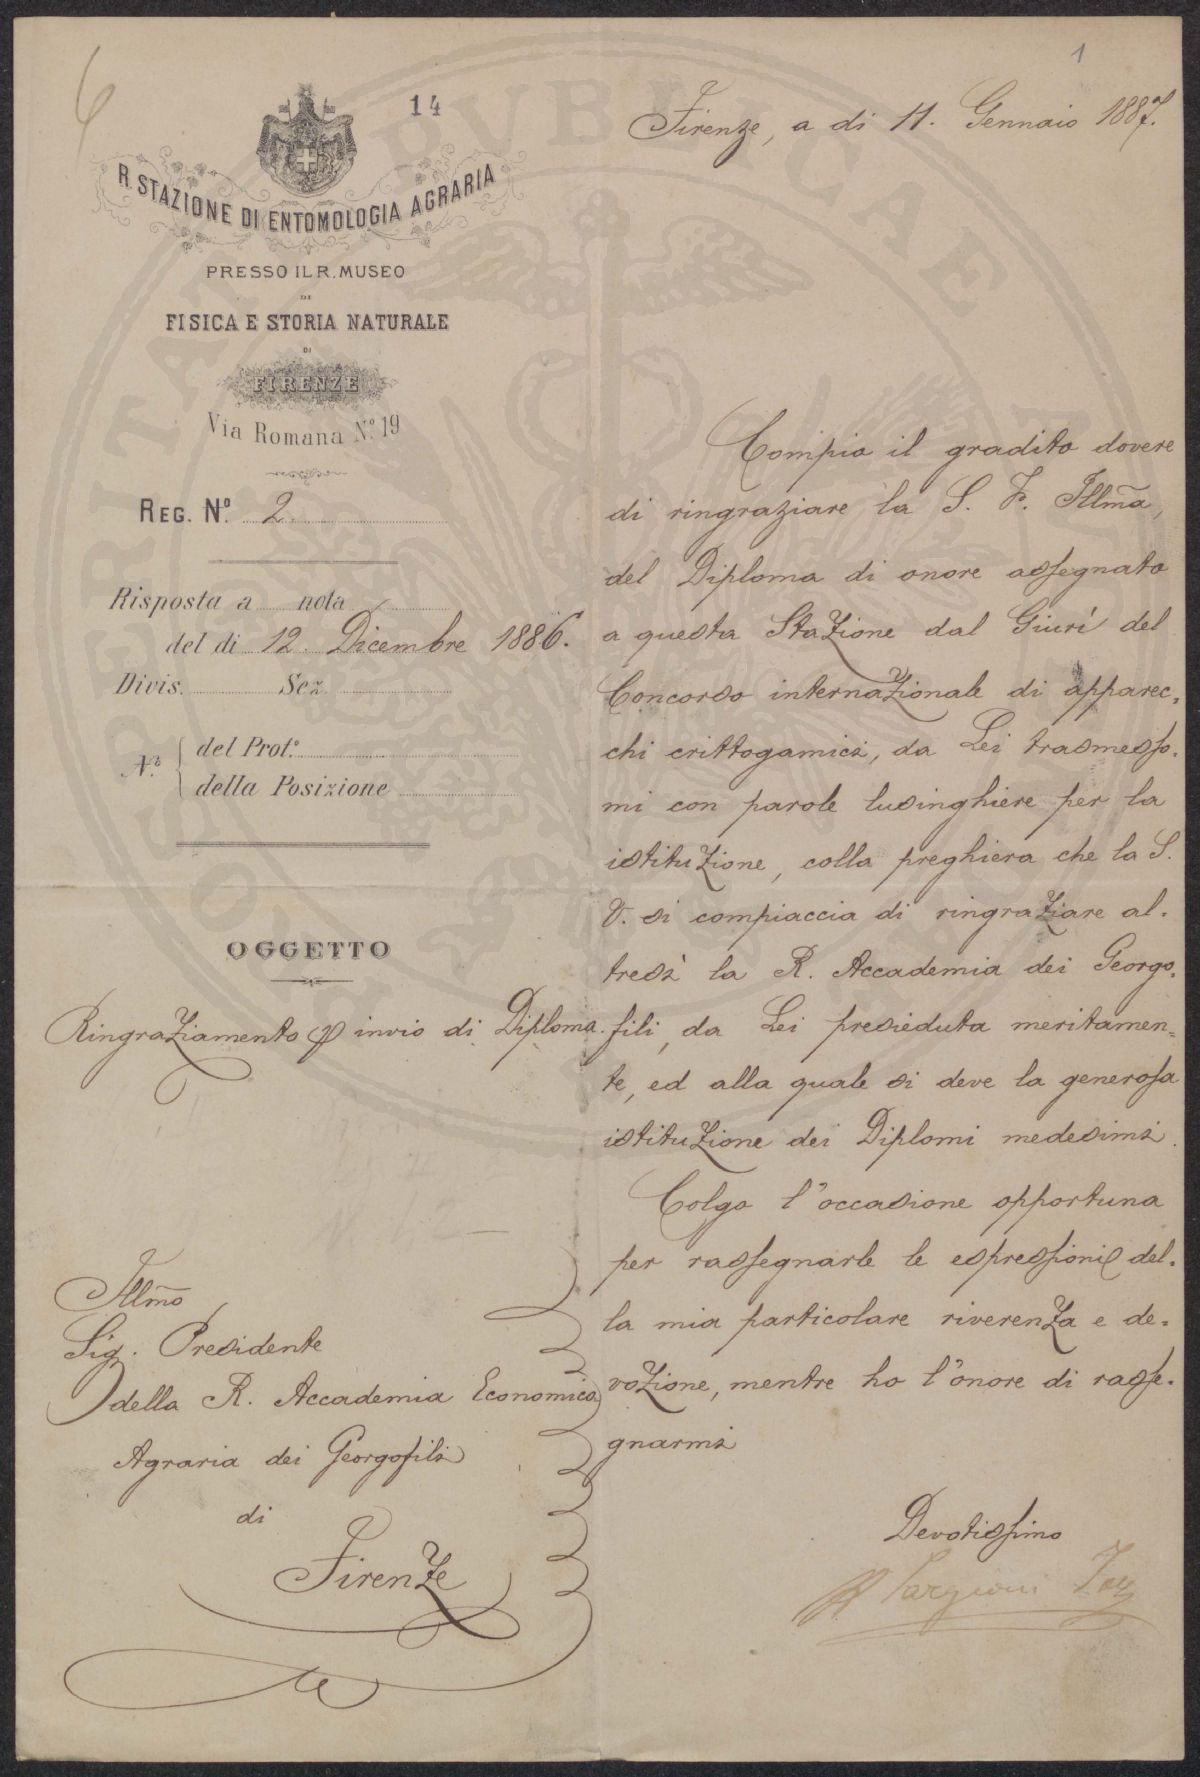 1
14
6
Firenze, a di 11. Gennaio 1887.
R. STAZIONE DI ENTOMOLOGIA AGRARIA
PRESSO IL R. MUSEO
DI
FISICA E STORIA NATURALE
DI
FIRENZE
Via Romana N.º 19
REG. Nº. 2.
Risposta a nota
del di 12. Dicembre 1886.
Divis. Sez.
N.º
del Prot.º
della Posizione
OGGETTO
Ringraziamento p invio di Diploma.
Illmo
Sig. Presidente
della R. Accademia Economica
Agraria dei Georgofili
di
Firenze
Compio il gradito dovere
di ringraziare la S. V. Illma,
del Diploma di onore assegnato
a questa Stazione dal Giurì del
Concorso internazionale di apparec-
chi crittogamici, da Lei trasmesso-
mi con parole lusinghiere per la
istituzione, colla preghiera che la S.
V. si compiaccia di ringraziare al-
tresì la R. Accademia dei Georgo-
fili, da Lei presieduta meritamen-
te, ed alla quale si deve la generosa
istituzione dei Diplomi medesimi.
Colgo l'occasione opportuna
per rassegnarle le espressioni del-
la mia particolare riverenza e de-
vozione, mentre ho l'onore di rasse-
gnarmi
Devotissimo
Targioni Tozz